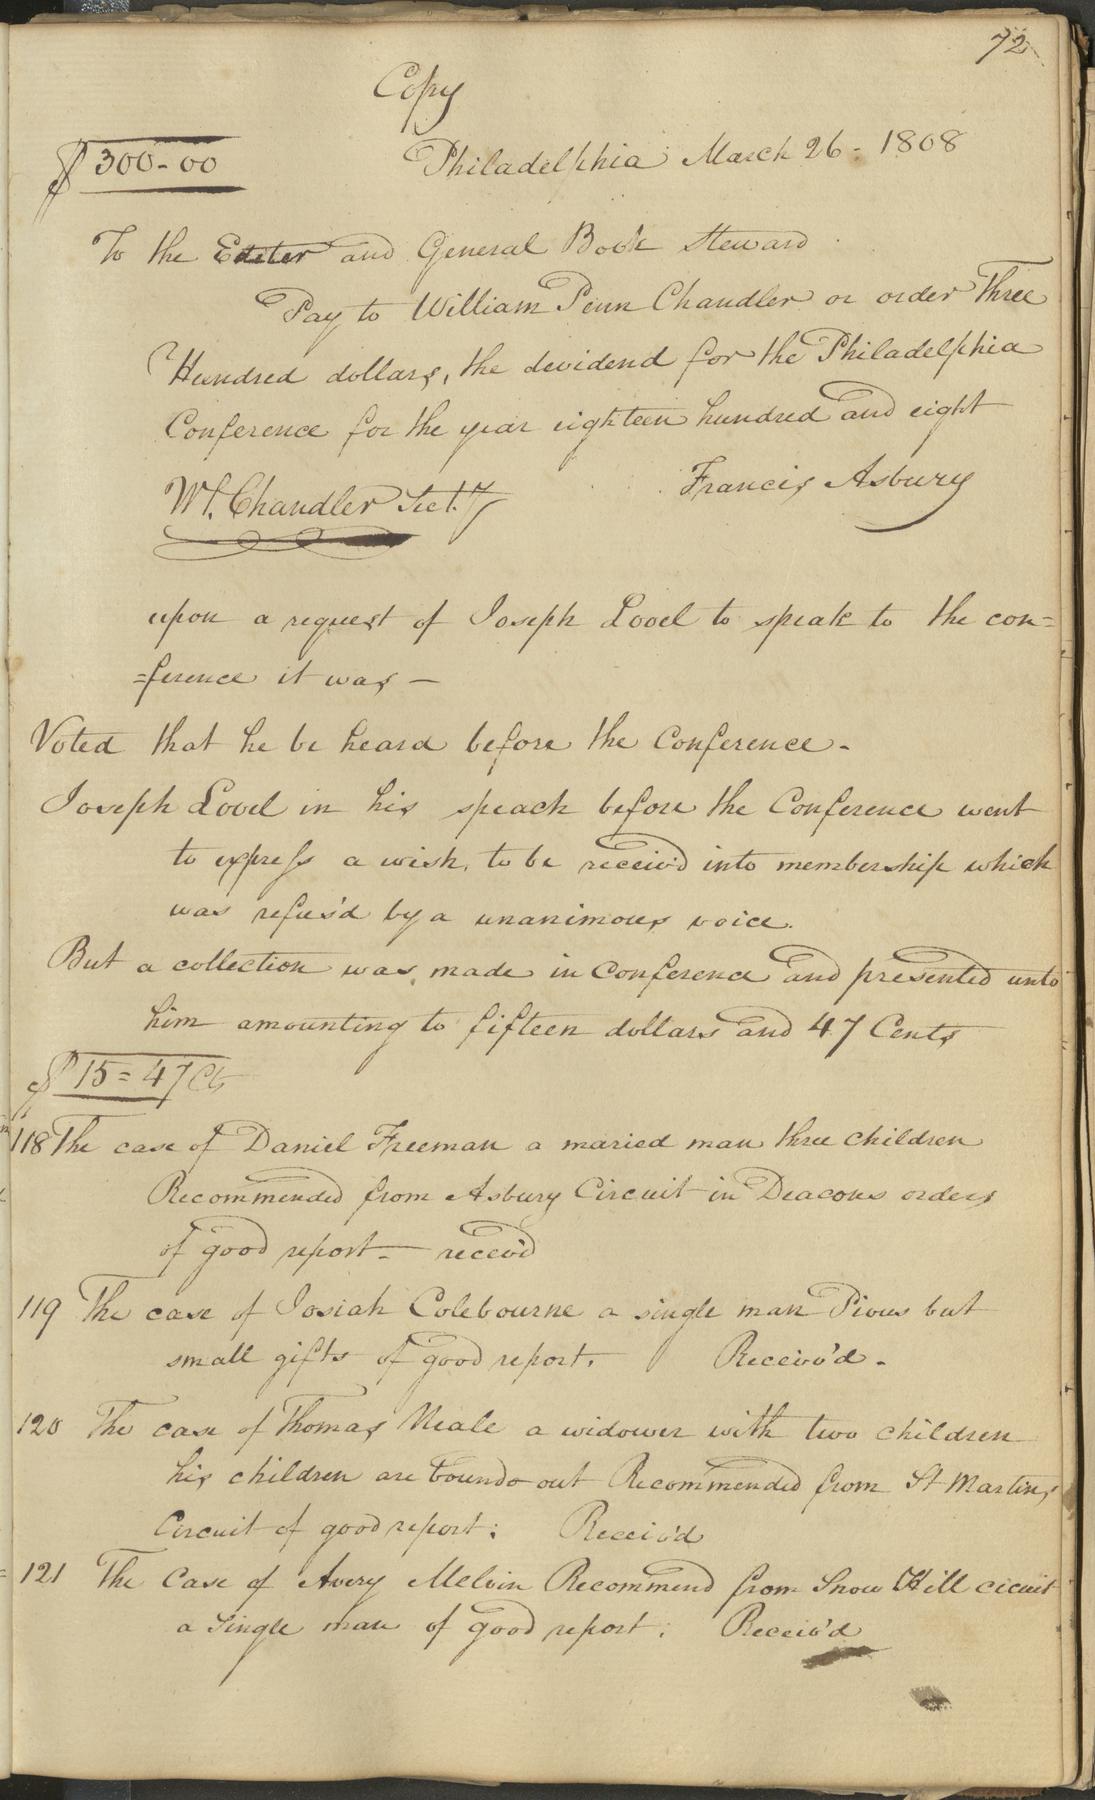 72
Copy
$300-00 Philadelphia March 26-1808
To the Editer and General Book Steward
Pay to William Penn Chandler or order Three
Hundred dollars, the devidend for the Philadelphia
Conference for the year eighteen hundred and eight
Francis Asbury
Wm. Chandler Sect.y
upon a request of Joseph Lovel to speak to the con=
=ference it was —
Voted that he be heard before the Conference -
Joseph Lovel in his speach before the Conference went
to express a wish, to be receiv'd into membership which
was refus'd by a unanimous voice.
But a collection was made in Conference and presented unto
him amounting to fifteen dollars and 47 Cents
$15=47 Cts
118 The case of Daniel Freeman a maried man three children
Recommended from Asbury Circuit in Deacons orders
of good report - receiv'd
119 The case of Josiah Colebourne a single man Pious but
small gifts of good report. Receiv'd -
120 The case of Thomas Neale a widower with two children
his children are bound out Recommended from St Martins
Circuit of good report; Receiv'd
121 The Case of Avery Melvin Recommend from Snow Hill cicuit
a single man of good report; Receiv'd